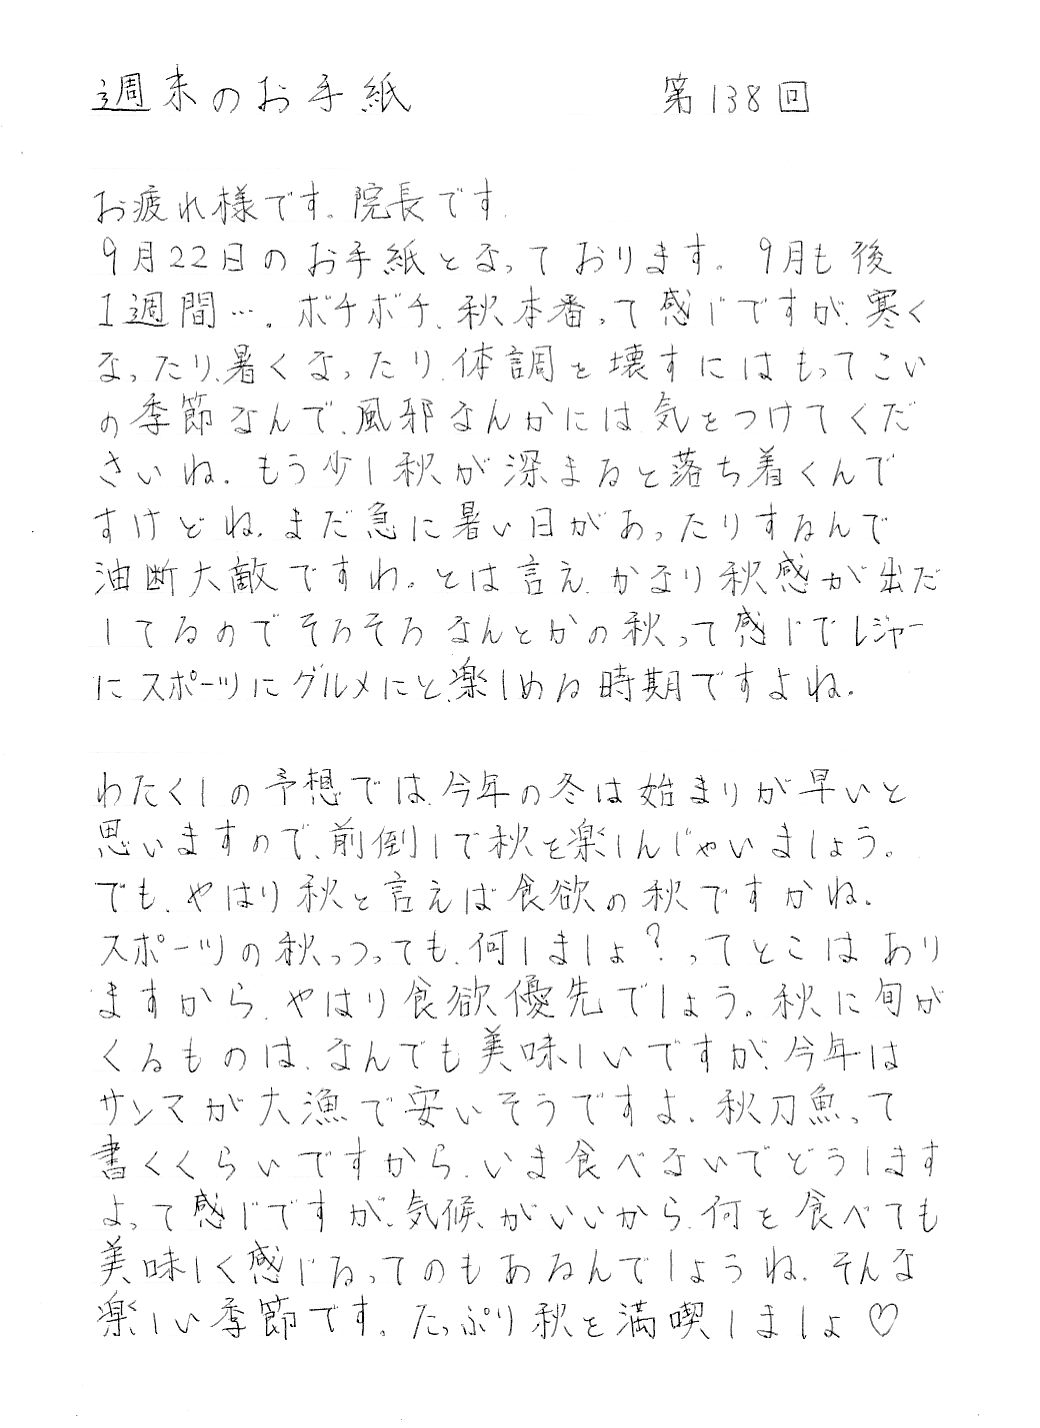 週末のお手紙 第138回
お疲れ様です。院長です。
9月22日のお手紙となっております。9月も後
1週間…。ボチボチ、秋本番って感じですが、寒く
なったり、暑くなったり、体調を壊すにはもってこい
の季節なんで、風邪なんかには気をつけてくだ
さいね。もう少し秋が深まると落ち着くんで
すけどね。まだ急に暑い日があったりするんで
油断大敵ですわ。とは言え、かなり秋感が出だ
してるのでそろそろなんとかの秋って感じでレジャー
にスポーツにグルメにと、楽しめる時期ですよね。
わたくしの予想では、今年の冬は始まりが早いと
思いますので、前倒しで秋を楽しんじゃいましょう。
でも、やはり秋と言えば食欲の秋ですかね。
スポーツの秋っつっても、何しましょ?ってとこはあり
ますから、やはり食欲優先でしょう。秋に旬が
くるものは、なんでも美味しいですが、今年は
サンマが大漁で安いそうですよ。秋刀魚って
書くくらいですから、いま食べないでどうします
よって感じですが、気候がいいから、何を食べても
美味しく感じるってのもあるんでしょうね。そんな
楽しい季節です。たっぷり秋を満喫しましょ♡